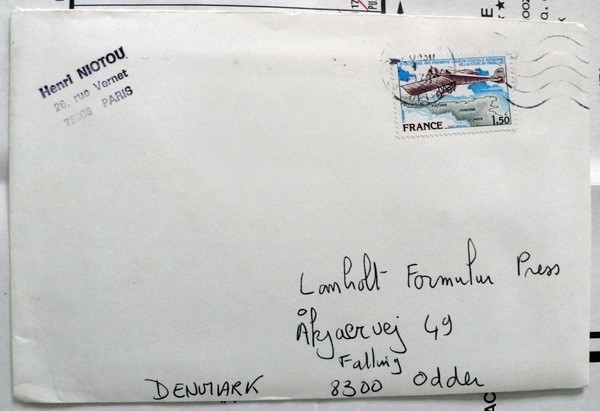 Henri NIOTOU
26, rue Vernet
75008 PARIS
FRANCE
1.50
Lomholt Formular Press
Åkjaervej 49
Falling
8300 Odder
DENMARK